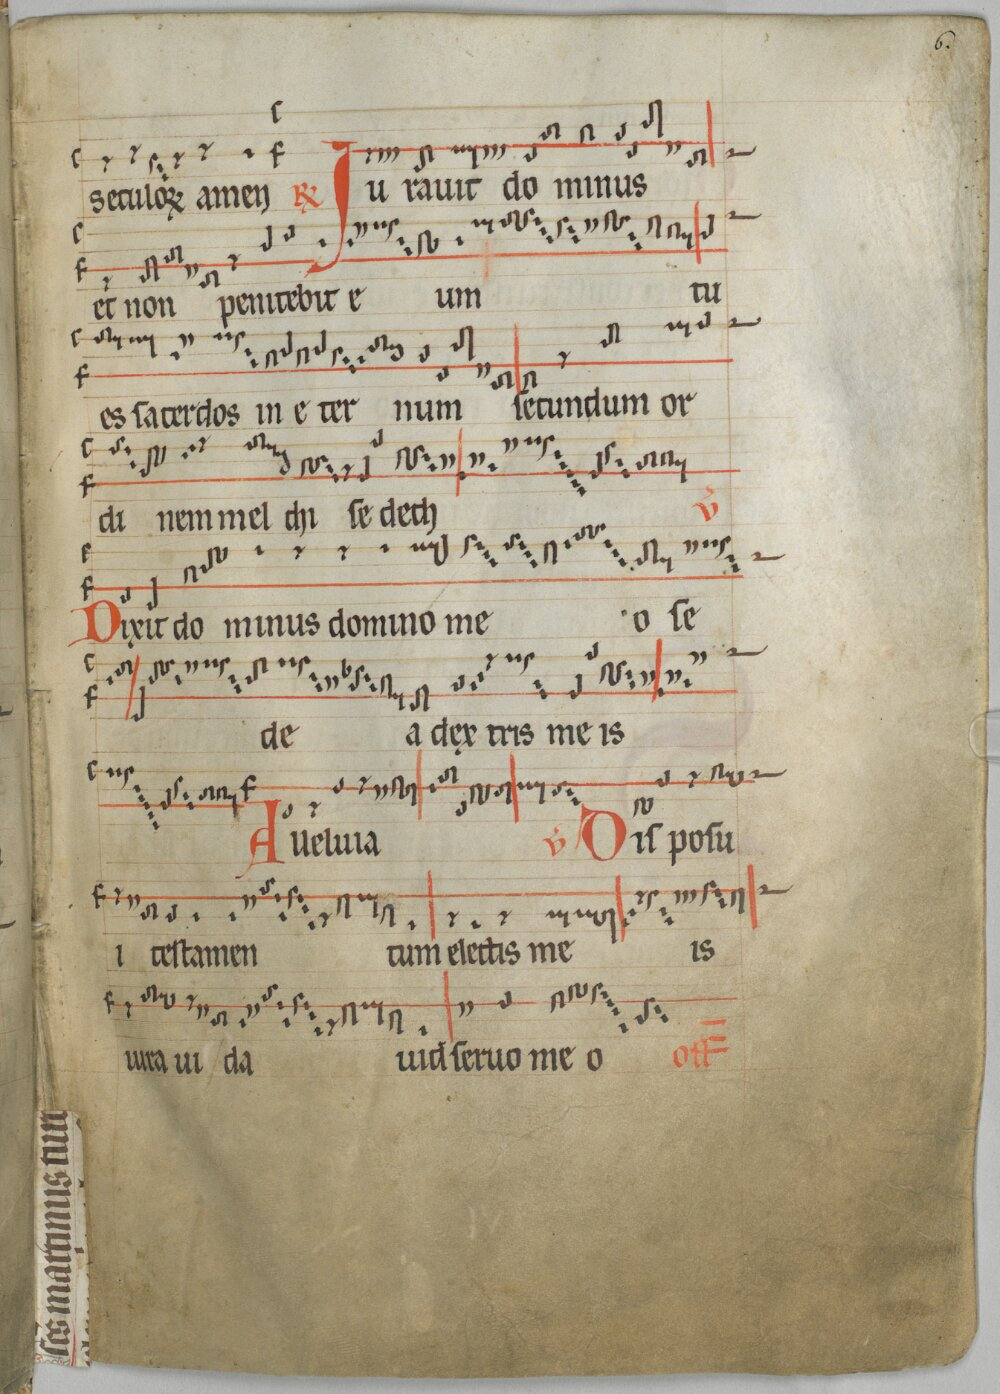 6.
seculoꝝ amen ℟ Ju rauit do minus
et non penitebit e um tu
es sacerdos in e ter num secundum or
di nem mel chi se dech ℣
Dixit do minus domino me o se
de a dex tris me is
Alleluia ℣ Dis posu
i testamen tum electis me is
iura ui da uid seruo me o off
scs martinus tun